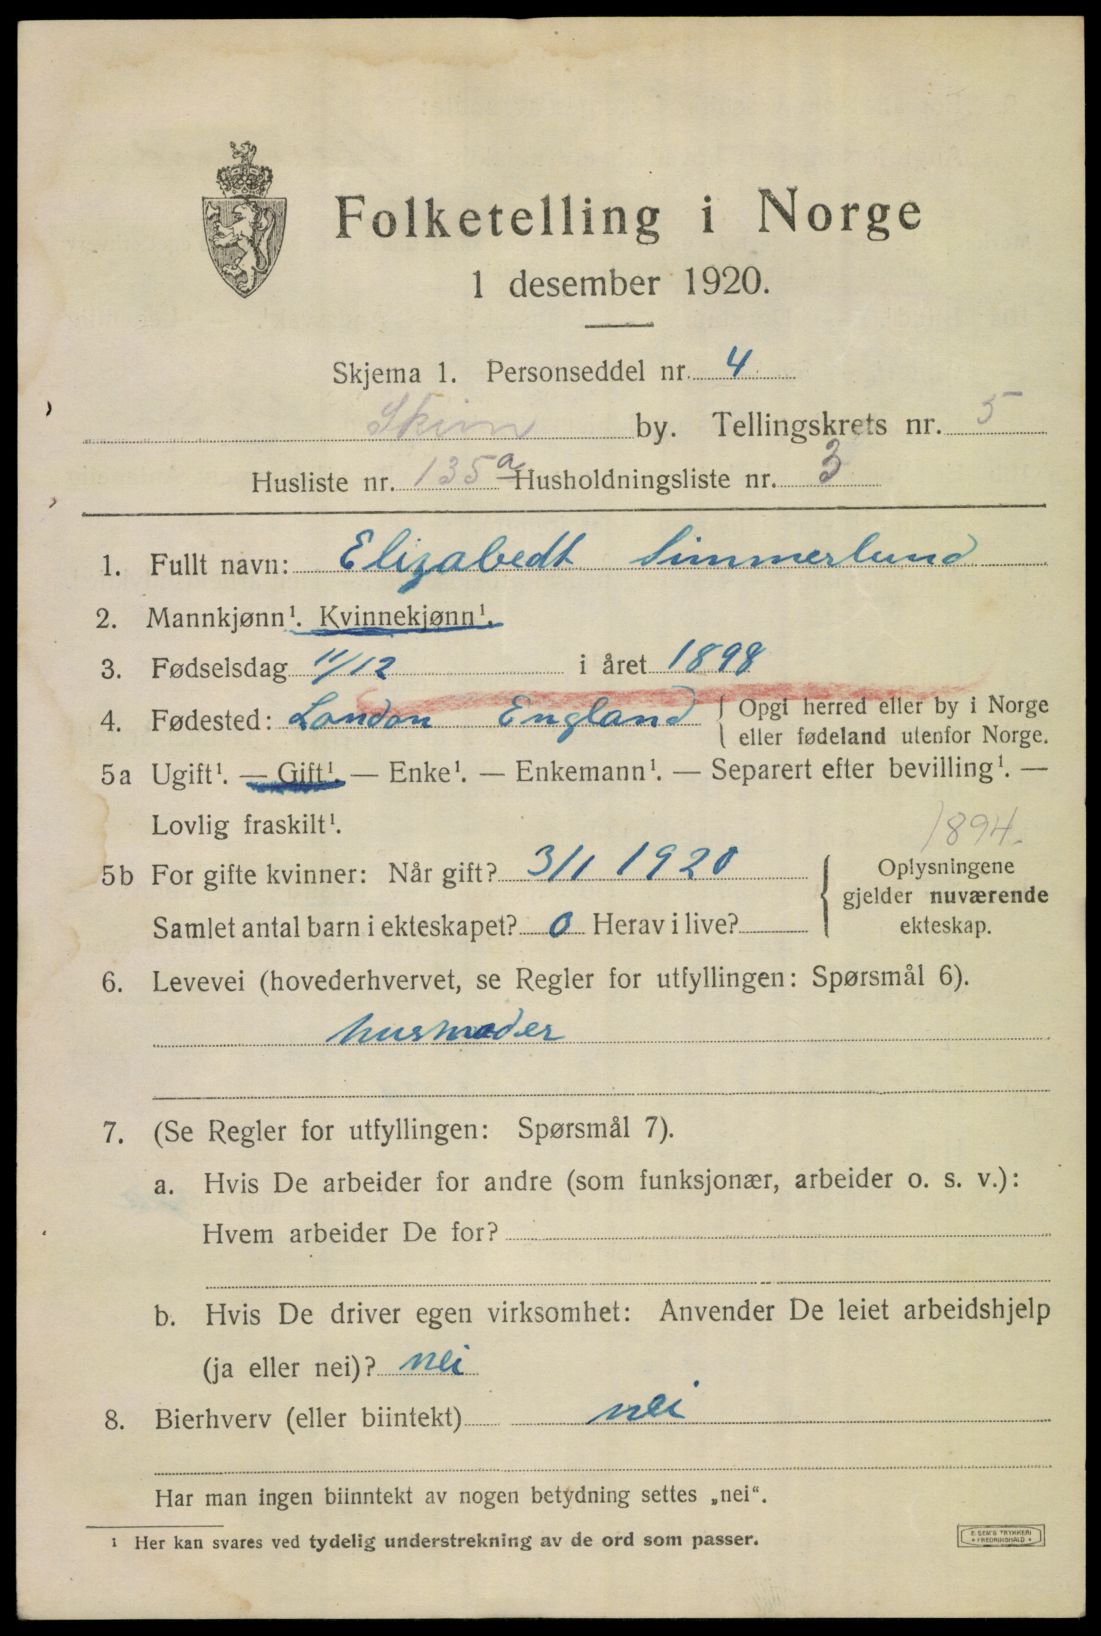 Folketelling i Norge
1 desember 1920.
Skjema 1. Personseddel nr. 4
Skien by. Tellingskrets nr. 5
Husliste nr. 135a Husholdningsliste nr. 3
1. Fullt navn: Elizabedt Simmerlund
2. Mannkjønn¹. Kvinnekjønn¹.
3. Fødselsdag 11/12 i året 1898
4. Fødested: London England { Opgi herred eller by i Norge
eller fødeland utenfor Norge.
5a Ugift¹. — Gift¹. — Enke¹. — Enkemann¹. — Separert efter bevilling¹. —
Lovlig fraskilt¹.
1894.
5b For gifte kvinner: Når gift? 3/1 1920 { Oplysningene
gjelder nuværende
Samlet antal barn i ekteskapet? 0 Herav i live? ekteskap.
6. Levevei (hovederhvervet, se Regler for utfyllingen: Spørsmål 6).
husmoder
7. (Se Regler for utfyllingen: Spørsmål 7).
a. Hvis De arbeider for andre (som funksjonær, arbeider o. s. v.):
Hvem arbeider De for?
b. Hvis De driver egen virksomhet: Anvender De leiet arbeidshjelp
(ja eller nei)? nei
8. Bierhverv (eller biintekt) nei
Har man ingen biinntekt av nogen betydning settes „nei“.
¹ Her kan svares ved tydelig understrekning av de ord som passer.
E. SEM'S TRYKKERI
FREDRIKSHALD